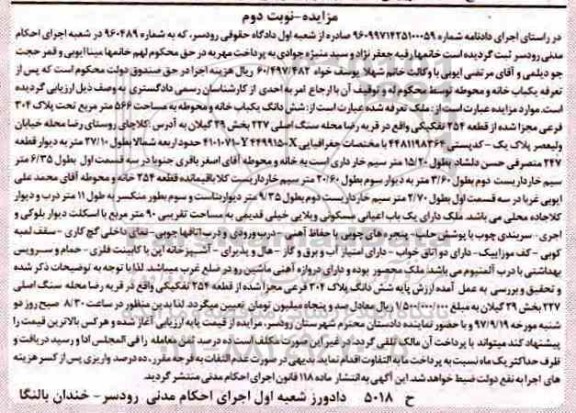 مزایده-نوبت دوم
در راستای اجرای دادنامه شماره ۹۶۰۹۹۷۱۴۲۵۱۰۰۰۵۹ صادره از شعبه اول دادگاه حقوقی رودسر، که به شماره ۹۶۰۴۸۹ در شعبه اجرای احکام
مدنی رودسر ثبت گردیده است خانمها رقیه جعفر نژاد و سید منیژه جوادی به پرداخت مهریه در حق محکوم لهم خانمها مینا ایوبی و قمر حجت
جو دیلمی و آقای مرتضی ایوبی با وکالت خانم شهلا یوسف خواه ۶۰/۴۹۷/۴۸۲ ریال هزینه اجرا در حق صندوق دولت محکوم است که پس از
تعرفه یکباب خانه و محوطه توسط محکوم له و توقیف آن با ارجاع امر به احدی از کارشناسان رسمی دادگستری به وصف ذیل ارزیابی گردیده
است. موارد مزایده عبارت است از: ملک تعرفه شده عبارت است از: شش دانگ یکباب خانه و محوطه به مساحت ۵۶۶ متر مربع تحت پلاک ۳۰۴
فرعی مجزا شده از قطعه ۲۵۴ تفکیکی واقع در قریه رضا محله سنگ اصلی ۲۲۷ بخش ۲۹ گیلان به آدرس: کلاچای روستای رضا محله خیابان
ولیعصر پلاک یک - کدپستی ۴۴۸۱۱۹۸۳۶۴ با مختصات جغرافیایی X=۴۴۹۹۱۵ Y=۴۱۰۱۰۷۱ حدود اربعه شمالا بطول ۲۷/۱۰ متر به دیوار قطعه
۲۴۷ متصرفی حسن دلشاد بطول ۱۵/۲۰ متر سیم خار داری است به خانه و محوطه آقای اصغر باقری جنوبا در سه قسمت اول بطول ۶/۳۵ متر
سیم خارداریست دوم بطول ۳/۶۰ متر به دیوار سوم بطول ۲۰/۶۰ متر سیم خارداریست کلا باقیمانده قطعه ۲۵۴ خانه و محوطه آقای محمد علی
ایوبی غربا در سه قسمت اول بطول ۲/۷۰ متر سیم خارداریست دوم بطول ۹/۳۵ متر دیواریناست و سوم بطور منکسر به طول ۱۱ متر درب و دیوار
کلاجاده محلی می باشد. ملک دارای یک باب اعیانی مسکونی ویلایی خیلی قدیمی به مساحت تقریبی ۹۰ متر مربع با اسکلت دیوار بلوکی و
آجری - سربندی چوب با پوشش حلب - پنجره های چوبی با حفاظ آهنی - درب ورودی و درب اتاقها چوبی - نمای داخلی گچ کاری - سقف لمبه
کوبی - کف موزاییک - دارای دو اتاق خواب - دارای امتیاز آب و برق و گاز - هال و پذیرای - آشپزخانه اپن با کابینت فلزی - حمام و سرویس
بهداشتی با درب آلمنیوم می باشد ملک محصور بوده و دارای دروازه آهنی ماشین رو در ضلع غرب میباشد. لذا با توجه به توضیحات ذکر شده
و تحقیق و بررسی به عمل آمده ارزش پایه شش دانگ پلاک ۳۰۴ فرعی مجزا شده از قطعه ۲۵۴ تفکیکی واقع در قریه رضا محله سنگ اصلی
۲۲۷ بخش ۲۹ گیلان به مبلغ ۱/۵۰۰/۰۰۰/۰۰۰ ریال معادل صد و پنجاه میلیون تومان تعیین میگردد. لذا بدین منظور در ساعت ۸/۳۰ صبح روز دو
شنبه مورخه ۹۷/۹/۱۹ و با حضور نماینده دادستان محترم شهرستان رودسر، مزایده از قیمت پایه ارزیابی آغاز شده و هرکس بالاترین قیمت را
پیشنهاد کند میتواند با پرداخت آن مالک تلقی گردد. در غیر این صورت مکلف است ده درصد ثمن معامله را فی المجلس ادا و رسید دریافت و
ظرف حداکثر یک ماه نسبت به پرداخت مابه التفاوت اقدام نماید بدیهی در صورت عدم التفات به فرجه مقرر، ده درصد واریزی پس از کسر هزینه
های اجرا به نفع دولت ضبط خواهد شد. این آگهی به انتشار ماده ۱۱۸ قانون اجرای احکام مدنی منتشر گردید.
ح ۵۰۱۸ دادورز شعبه اول اجرای احکام مدنی رودسر - خندان بالنگا